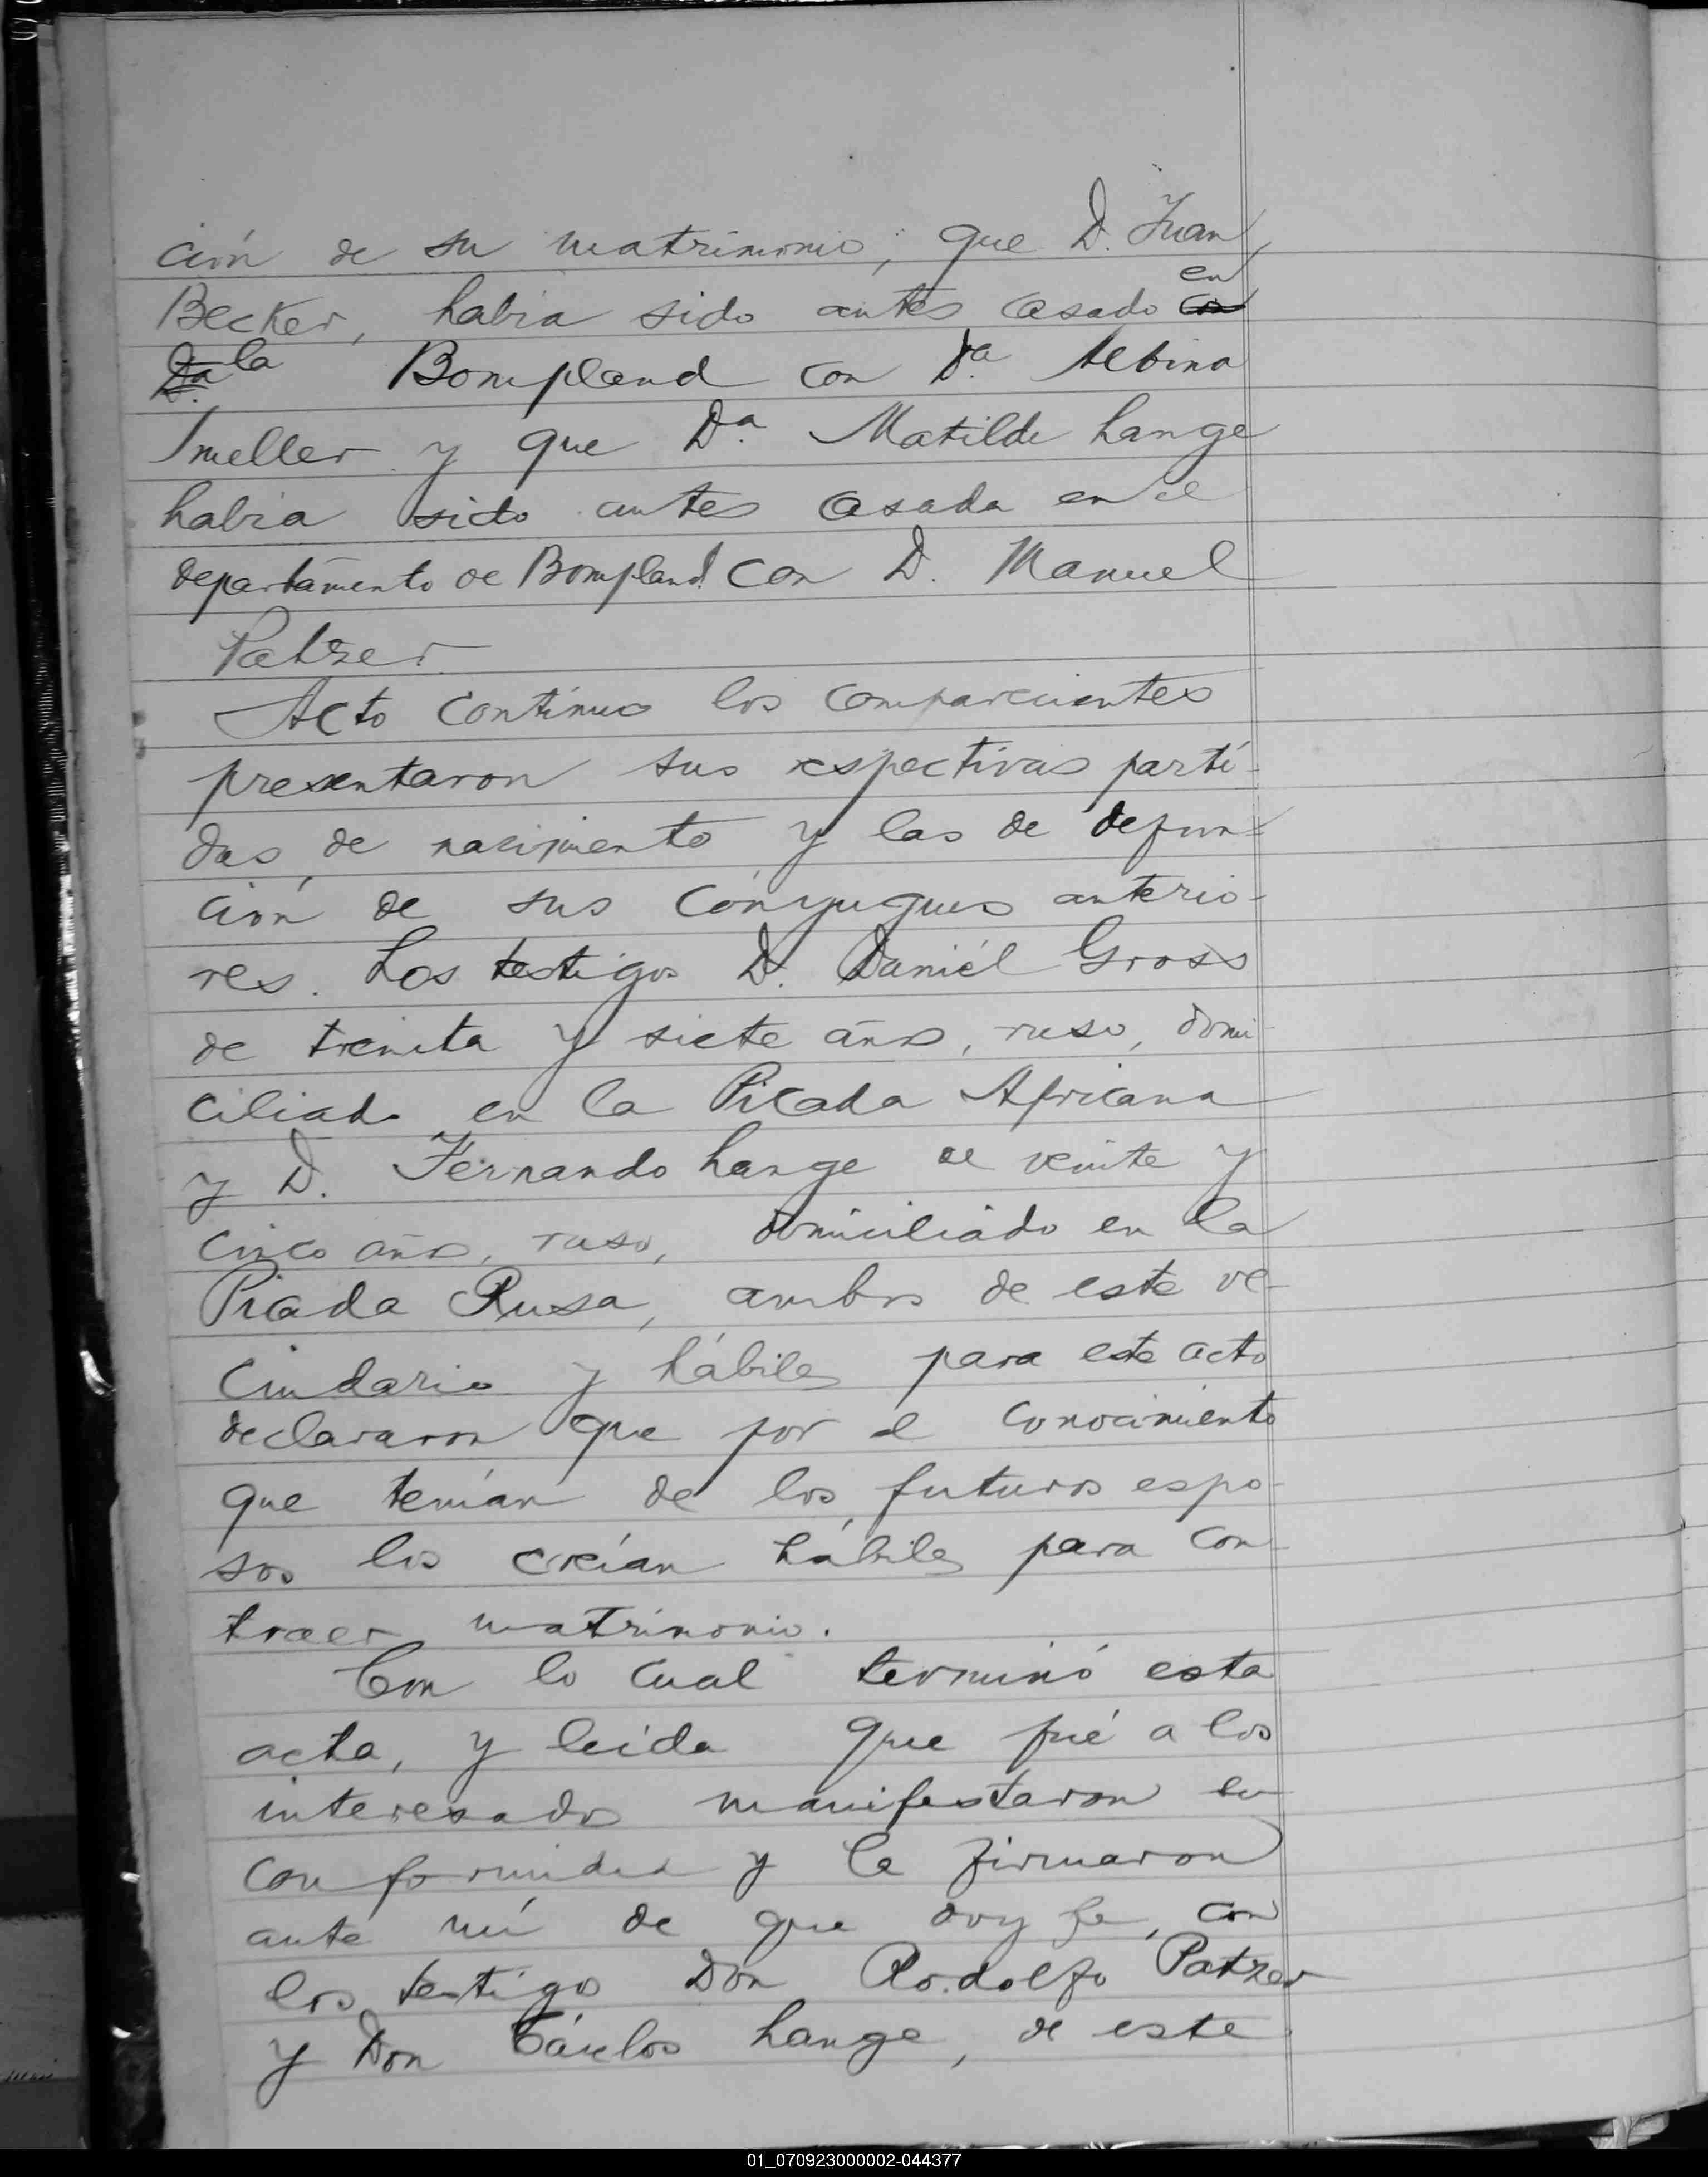 ción de su matrimonio; que D. Juan
en
Becker, habia sido antes casado con
Da. la Bompland con Da. Albina
Smeller y que Da. Matilde Lange
habia sido antes casada en el
departamento de Bompland con D. Manuel
Patzer
Acto continuo los comparecientes
presentaron sus respectivas parti-
das de nacimiento y las de defun-
ción de sus cónyugues anterio-
res. Los testigos D. Daniél Gross
de treinta y siete años, ruso, domi-
ciliado en la Picada Africana
y D. Fernando Lange de veinte y
cinco años, ruso, domiciliado en la
Picada Rusa, ambos de este ve-
cindario y hábiles para este acto
declararon que por el conocimiento
que tenían de los futuros espo-
sos los creían hábiles para con-
traer matrimonio.
Con lo cual terminó esta
acta, y leida que fué a los
interesados manifestaron su
conformidad y la firmaron
ante mí de que doy fe, con
los testigos Don Rodolfo Patzer
y Don Cárlos Lange, de este
01_070923000002-044377